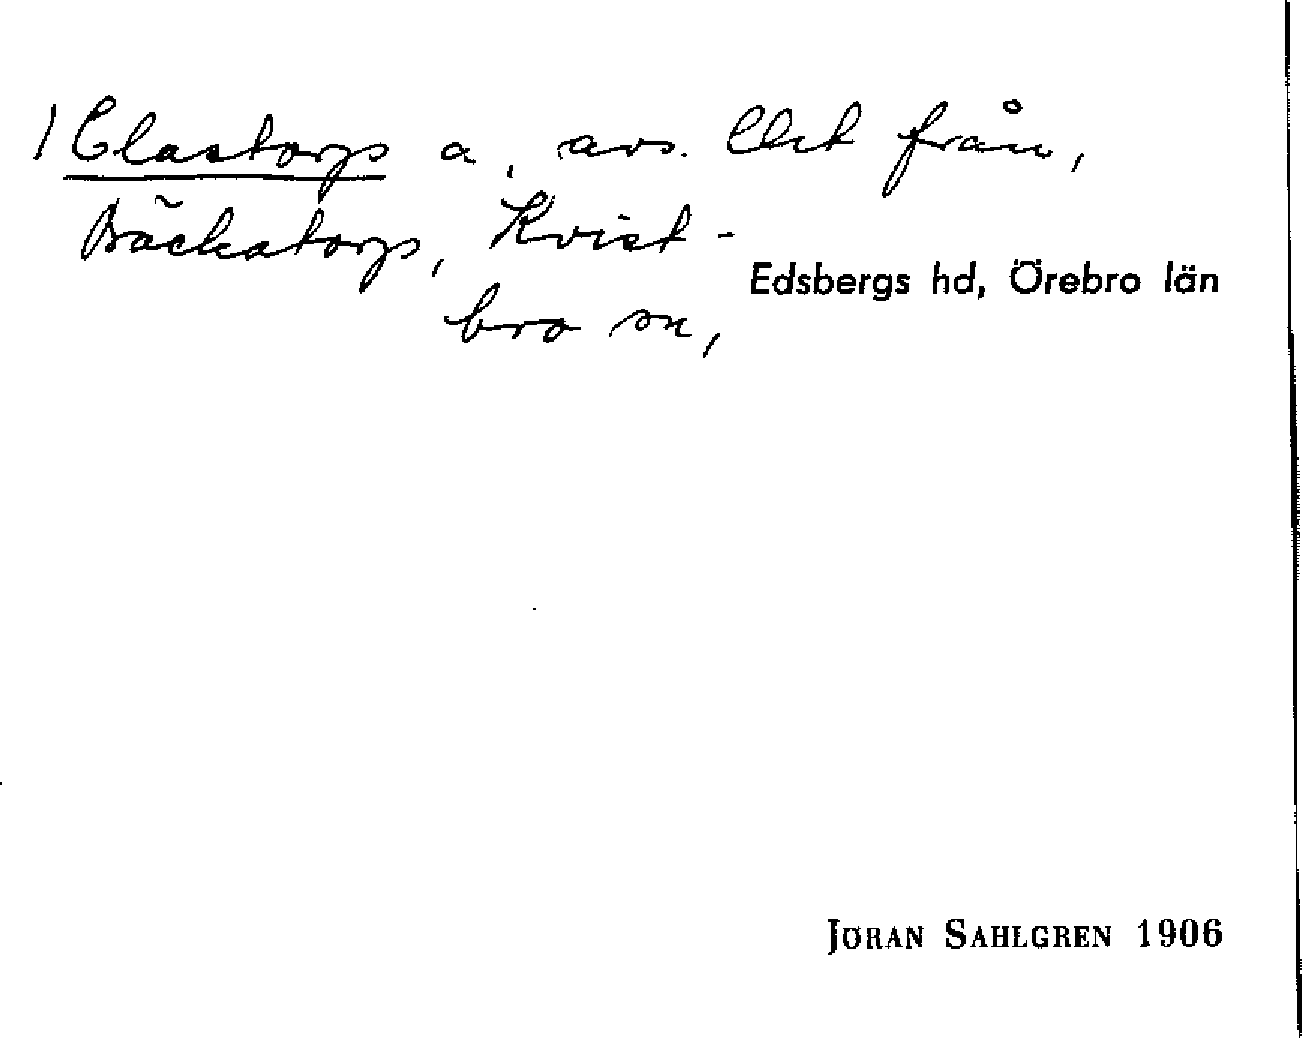 1 Clastorp a, avs. Utt från,
Bäckatorp, Kvist-
bro sn,
Edsbergs hd, Örebro län
JÖRAN SAHLGREN 1906